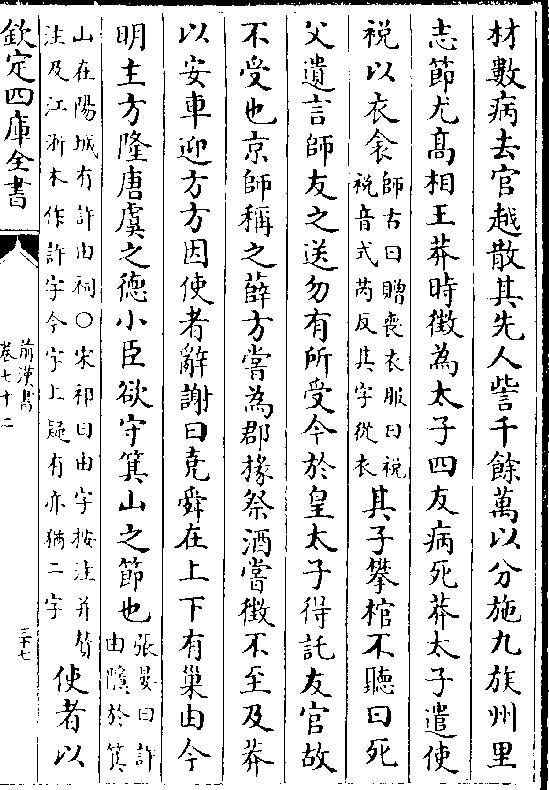 材數病去官越散其先人訾千餘萬以分施九族州里
志節尤髙相王莽時徴為太子四友病死莽太子遣使
裞以衣衾師古曰贈喪衣服曰裞
裞音式芮反其字從衣其子攀棺不聽曰死
父遺言師友之送勿有所受今於皇太子得託友官故
不受也京師稱之薛方嘗為郡掾祭酒嘗徴不至及莽
以安車迎方方因使者辭謝曰堯舜在上下有巢由今
明主方隆唐虞之德小臣欲守箕山之節也張晏曰許
由隱於箕
山在陽城有許由祠○宋祁曰由字按注并
注及江浙本作許字今字上疑有亦猶二字使者以
欽定四庫全書
前漢書
卷七十二
三十七